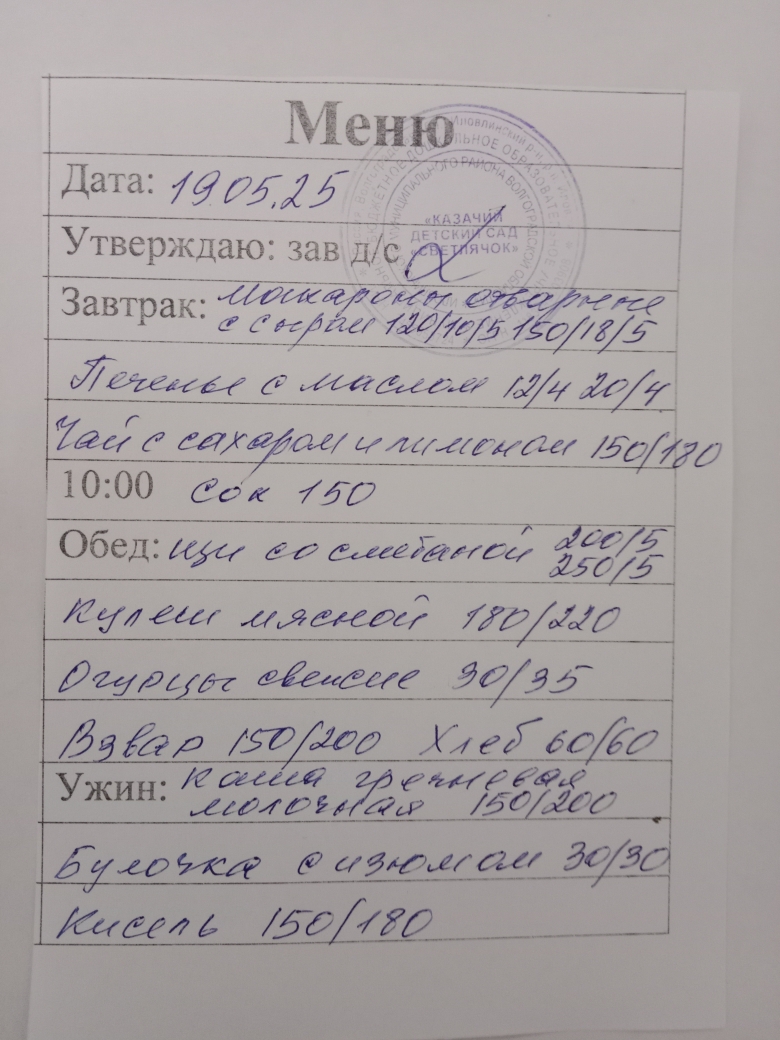 Меню
Дата: 19.05.25
Утверждаю: зав д/с
«КАЗАЧИЙ
ДЕТСКИЙ САД
«СВЕТЛЯЧОК»
Завтрак: Макароны отварные
с сыром 120/10/5 150/18/5
Печенье с маслом 12/4 20/4
Чай с сахаром и лимоном 150/180
10:00 Сок 150
Обед: щи со сметаной 200/5
250/5
Кулеш мясной 180/220
Огурцы свежие 30/35
Взвар 150/200 Хлеб 60/60
Ужин: каша гречневая
молочная 150/200
Булочка с изюмом 30/30
Кисель 150/180